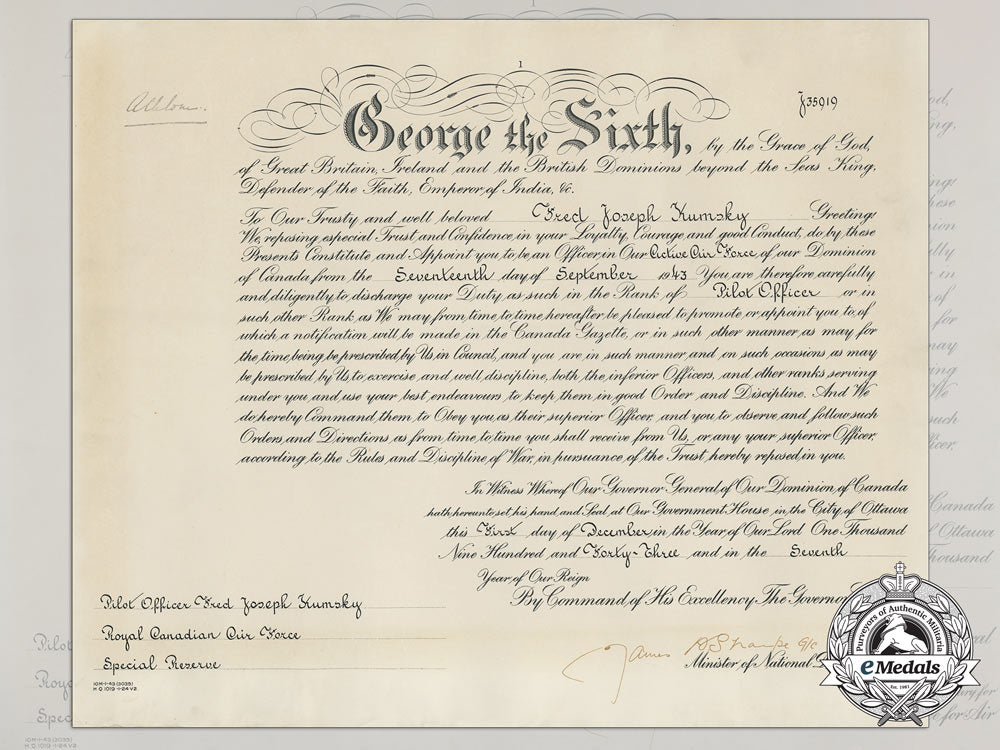 1
J35019
George the Sixth, by the Grace of God,
of Great Britain, Ireland and the British Dominions beyond the Seas King,
Defender of the Faith, Emperor of India, &c.
To Our Trusty and well beloved Fred Joseph Kumsky Greeting:
We, reposing especial Trust and Confidence in your Loyalty, Courage and good Conduct, do by these
Presents Constitute and Appoint you to be an Officer in Our Active Air Force of our Dominion
of Canada from the Seventeenth day of September 1943 You are therefore carefully
and diligently to discharge your Duty as such in the Rank of Pilot Officer or in
such other Rank as We may from time to time hereafter be pleased to promote or appoint you to, of
which a notification will be made in the Canada Gazette, or in such other manner as may for
the time being be prescribed by Us in Council, and you are in such manner and on such occasions as may
be prescribed by Us, to exercise and well discipline both the inferior Officers, and other ranks serving
under you and use your best endeavours to keep them in good Order and Discipline. And We
do hereby Command them to Obey you as their superior Officer, and you to observe and follow such
Orders and Directions as from time to time you shall receive from Us, or any your superior Officer,
according to the Rules and Discipline of War, in pursuance of the Trust hereby reposed in you.
In Witness Whereof Our Governor General of Our Dominion of Canada
hath hereunto set his hand and Seal at Our Government House in the City of Ottawa
this First day of December in the Year of Our Lord One Thousand
Nine Hundred and Forty-Three and in the Seventh
Year of Our Reign
By Command of His Excellency The Governor
Pilot Officer Fred Joseph Kumsky
Royal Canadian Air Force
Special Reserve
James
Minister of National
10M-1-43 (3035)
H.Q. 1019-1-24 V2
Purveyors of Authentic Militaria
eMedals
Est. 1967